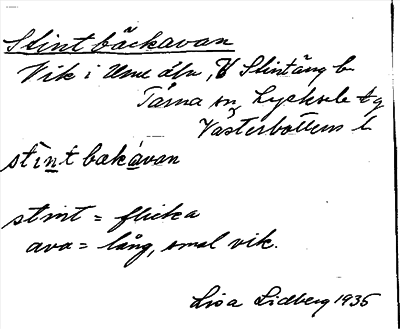 Stintbäckavan
Vik i Ume älv, V Slintäng b.
Tärna sn, Lycksele tg
Västerbottens l
stintbakavan
stint = flicka
ava = lång, smal vik.
Lisa Lidberg 1935